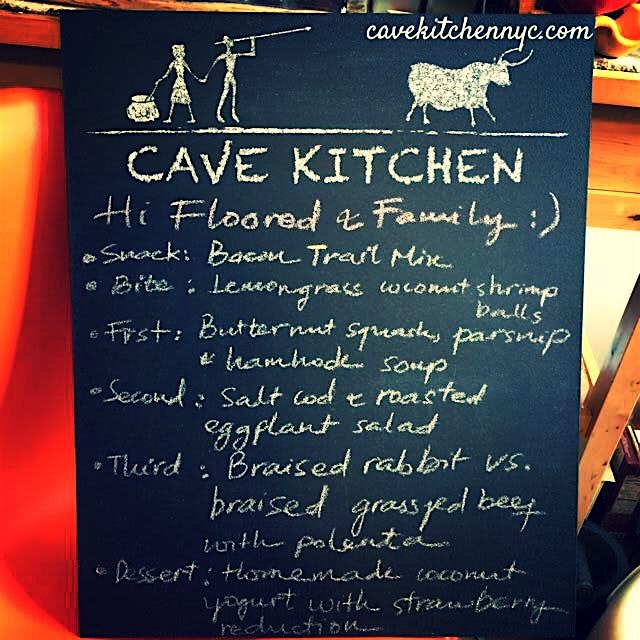 cavekitchennyc.com
CAVE KITCHEN
Hi Floored & Family :)
• Snack: Bacon Trail Mix
• Bite: Lemongrass coconut shrimp
balls
• First: Butternut squash, parsnip
& hamhock soup
• Second: Salt cod & roasted
eggplant salad
• Third: Braised rabbit vs.
braised grassfed beef
with polenta
• Dessert: Homemade coconut
yogurt with strawberry
reduction